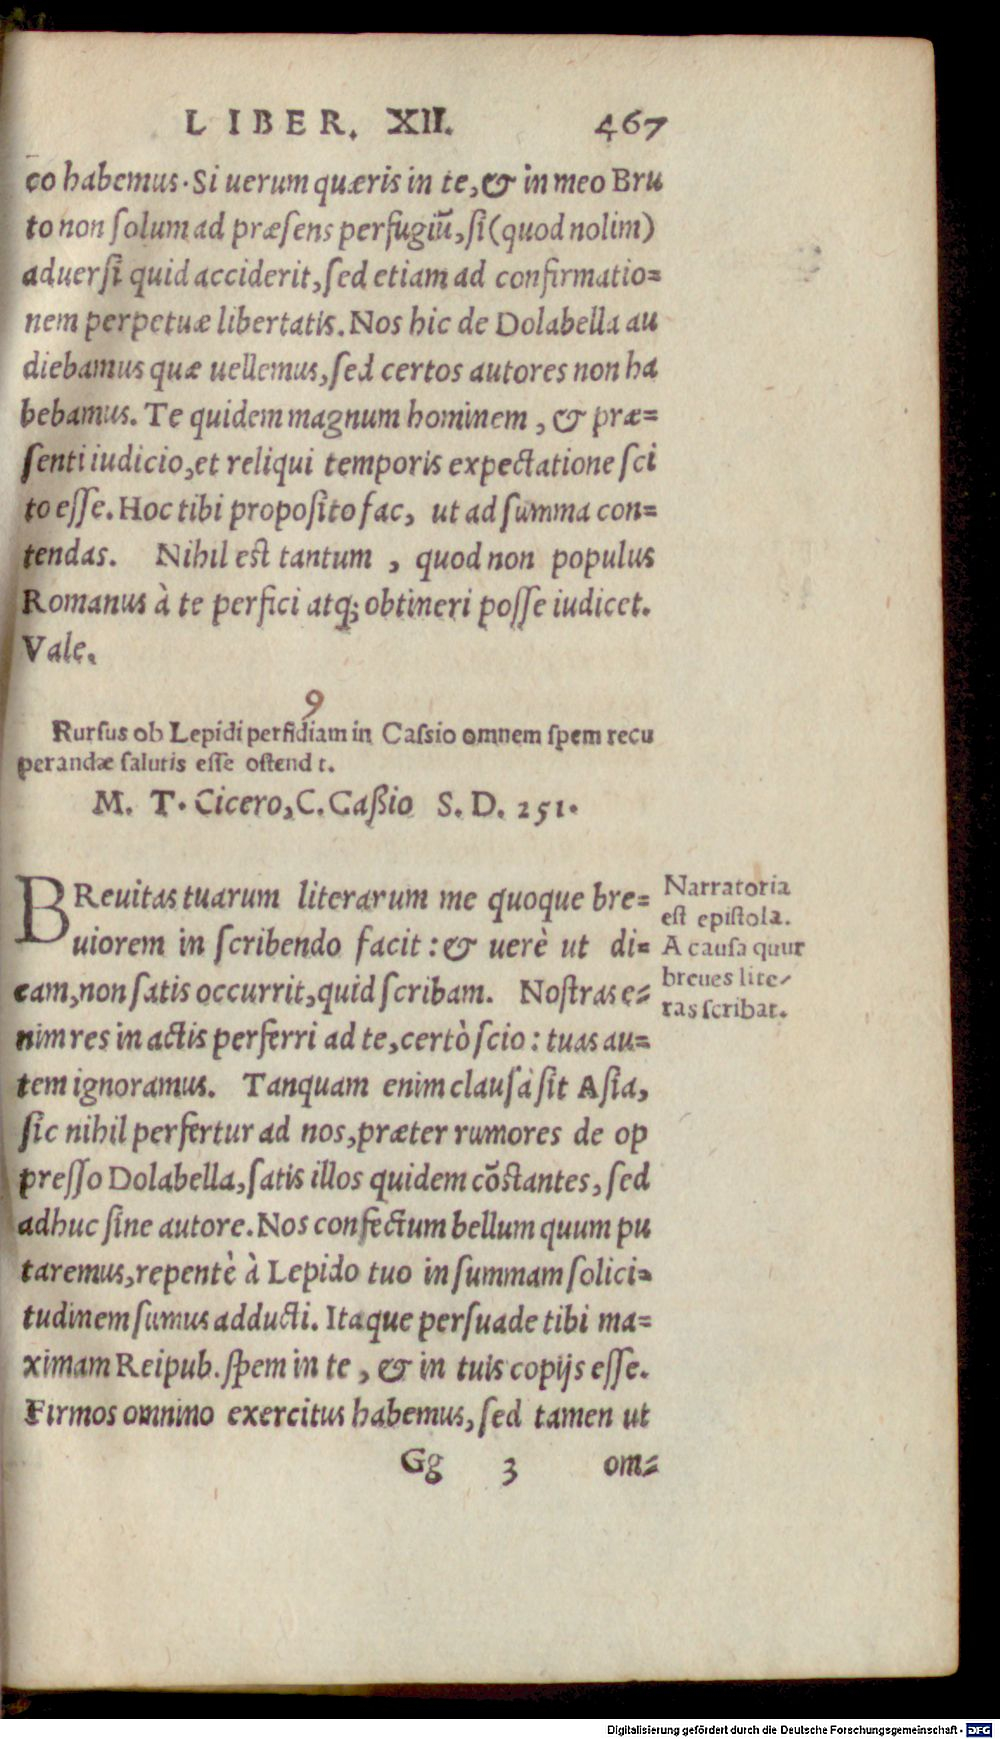 LIBER. XII. 467
co habemus. Si uerum quæris in te, & in meo Bru
to non ſolum ad præſens perfugiū, ſi (quod nolim)
aduerſi quid acciderit, ſed etiam ad confirmatio=
nem perpetuæ libertatis. Nos hic de Dolabella au
diebamus quæ uellemus, ſed certos autores non ha
bebamus. Te quidem magnum hominem, & præ=
ſenti iudicio, et reliqui temporis expectatione ſci
to eſſe. Hoc tibi propoſito fac, ut ad ſumma con=
tendas. Nihil eſt tantum, quod non populus
Romanus à te perfici atq; obtineri poſſe iudicet.
Vale.
9
Rurſus ob Lepidi perfidiam in Caſsio omnem ſpem recu
perandæ ſalutis eſſe oſtend t.
M. T. Cicero, C. Caßio S. D. 251.
BReuitas tuarum literarum me quoque bre=
uiorem in ſcribendo facit: & uerè ut di=
cam, non ſatis occurrit, quid ſcribam. Noſtras e=
nim res in actis perferri ad te, certò ſcio: tuas au=
tem ignoramus. Tanquam enim clauſa ſit Aſia,
ſic nihil perfertur ad nos, præter rumores de op
preſſo Dolabella, ſatis illos quidem cōſtantes, ſed
adhuc ſine autore. Nos confectum bellum quum pu
taremus, repentè à Lepido tuo in ſummam ſolici=
tudinem ſumus adducti. Itaque perſuade tibi ma=
ximam Reipub. ſpem in te, & in tuis copijs eſſe.
Firmos omnino exercitus habemus, ſed tamen ut
Gg 3 om=
Narratoria
eſt epiſtola.
A cauſa quur
breues lite=
ras ſcribat.
Digitalisierung gefördert durch die Deutsche Forschungsgemeinschaft - DFG